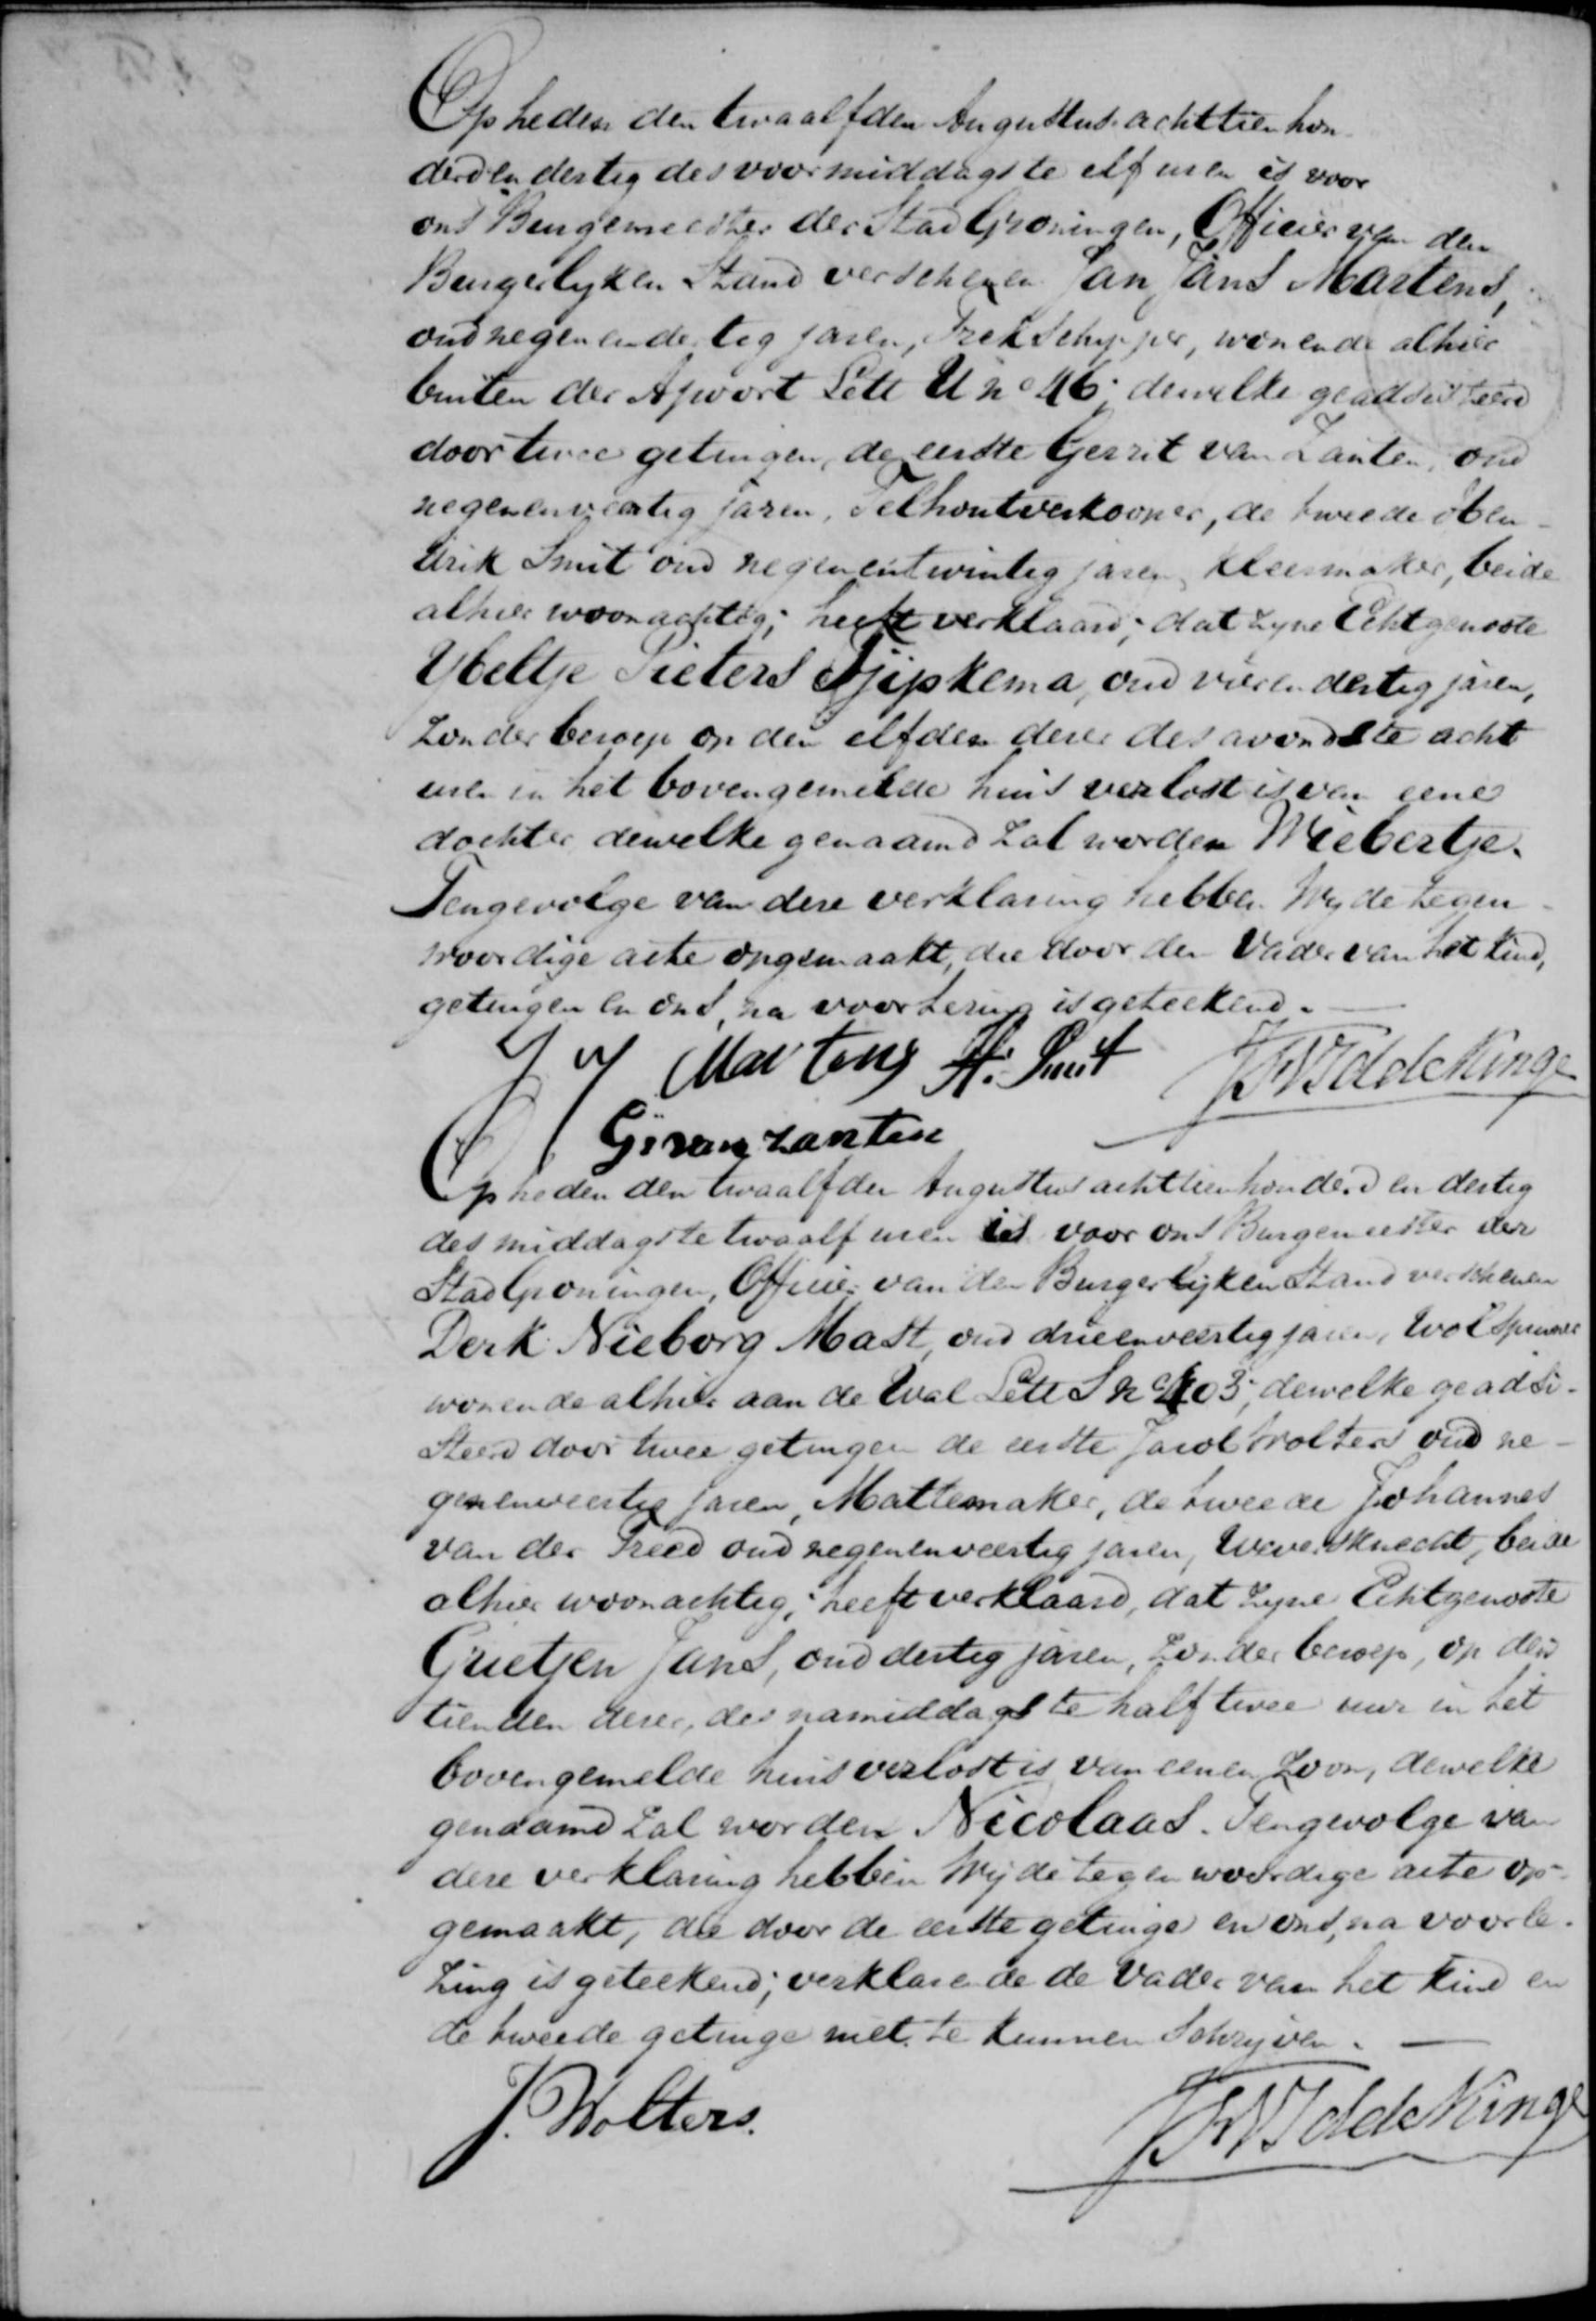 Op heden den twaalfden Augustus achttien hon-
derd en dertig des voormiddags te elf uren is voor
ons Burgemeester der Stad Groningen, Officier van den
Burgerlyken Stand verschenen Jan Jans Martens,
oud negenendertig jaren, Trekschipper, wonende alhier
buiten der Apoort Lett U no 46; dewelke geadsisteerd
door twee getuigen, de eerste Gerrit van Zanten, oud
negenenveertig jaren, Felhoutverkooper, de tweede Hen-
drik Smit oud negenentwintig jaren, kleermaker, beide
alhier woonachtig; heeft verklaard; dat zyne Echtgenoote
Ybeltje Pieters Tjipkema, oud vierendertig jaren,
zonder beroep op den elfden dezer des avonds te acht
uren in het bovengemelde huis verlost is van eene
dochter dewelke genaamd zal worden Wiebertje.
Tengevolge van deze verklaring hebben Wy de tegen-
woordige acte opgemaakt, die door den Vader van het kind,
getuigen en ons, na voorlezing is geteekend. —
J J Martens H. Smit
G: van Zanten
Op heden den twaalfden Augustus achttienhonderd en dertig
des middags te twaalf uren is voor ons Burgemeester der
Stad Groningen, Officier van den Burgerlyken Stand verschenen
Derk Nieborg Mast, oud drieenveertig jaren, Wolspinner
wonende alhier aan de Wal Lett S no 103; dewelke geadsi-
steerd door twee getuigen de eerste Jacob Wolters oud ne-
genenveertig jaren, Mattemaker, de tweede Johannes
van der Treed oud negenenveertig jaren, Weversknecht, beide
alhier woonachtig; heeft verklaard, dat zyne Echtgenoote
Grietjen Jans, oud dertig jaren, zonder beroep, op den
tienden dezer, des namiddags te half twee uur in het
bovengemelde huis verlost is van eenen Zoon, dewelke
genaamd zal worden Nicolaas. Tengevolge van
deze verklaring hebben Wij de tegenwoordige acte op-
gemaakt, die door de eerste getuige en ons, na voorle-
zing is geteekend; verklarende de Vader van het kind en
de tweede getuige niet te kunnen schryven. —
J. Wolters.